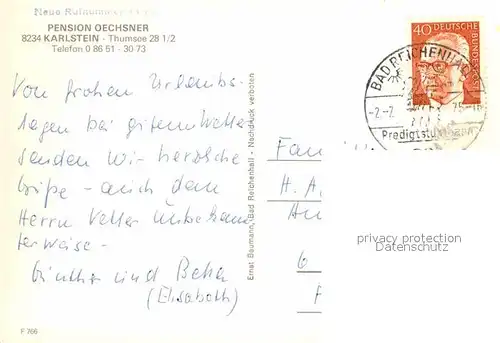 Neue Rufnummer
PENSION OECHSNER
8234 KARLSTEIN - Thumsee 28 1/2
Telefon 0 86 51 - 30 73
Von frohen Urlaubs-
tagen bei gutem Wetter
senden wir herzliche
Grüße - auch dem
Herrn Vetter unbekann
terweise -
Günther und Beka
(Elisabeth)
F 766
Ernst Baumann, Bad Reichenhall - Nachdruck verboten
40 DEUTSCHE BUNDESPOST
BAD REICHENHALL
-2.-2. 75-18
Predigtstuhl
Fam
H. A
privacy protection
DATENSCHUTZ